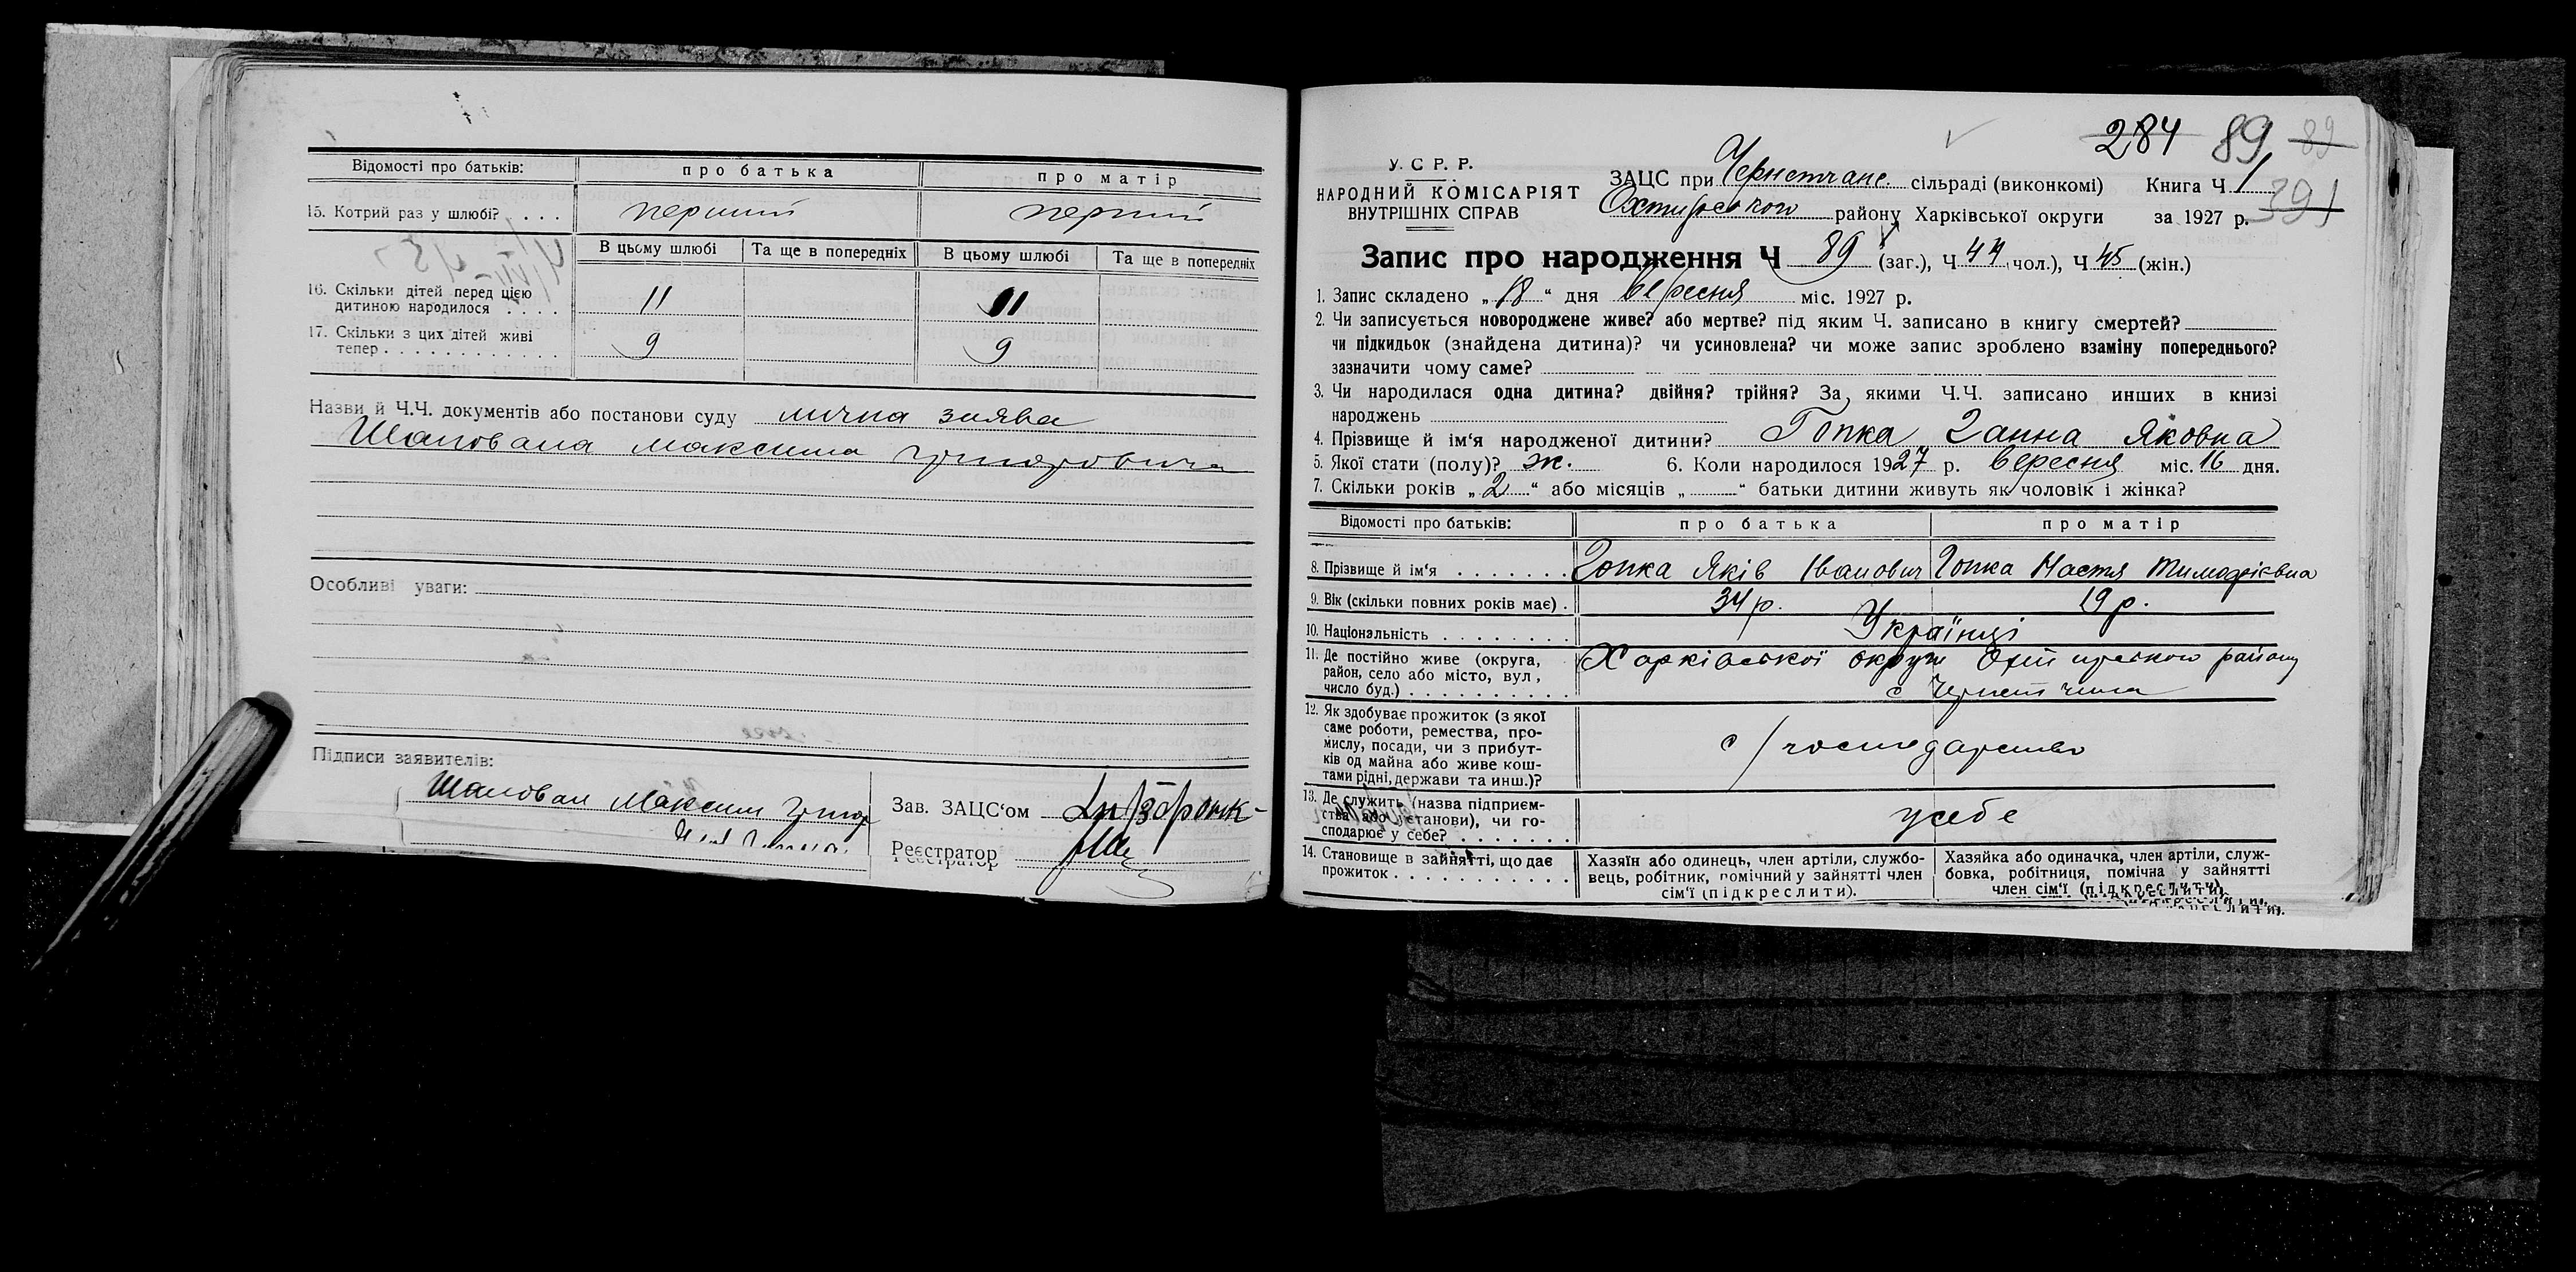 Відомості про батьків: про батька про матір
15. Котрий раз у шлюбі? . . . перший перший
В цьому шлюбі Та ще в попередніх В цьому шлюбі Та ще в попередніх
16. Скільки дітей перед цією
дитиною народилося . . . . 11 11
17. Скільки з цих дітей живі
тепер . . . . . . . . . . . . 9 9
Назви й Ч.Ч. документів або постанови суду лична заява
Шаповала Максима Григоровича
Особливі уваги:
Підписи заявителів:
Шаповал Максим Григор
Зав. ЗАЦС‘ом
Реєстратор
284 89 89
У. С. Р. Р.
НАРОДНИЙ КОМІСАРІЯТ
ВНУТРІШНІХ СПРАВ
ЗАЦС при Чернетчанс. сільраді (виконкомі) Книга Ч. 1
Охтирського району Харківської округи за 1927 р. 391
Запис про народження Ч 89 (заг.), Ч 44 чол.), Ч 45 (жін.)
1. Запис складено „ 18 “ дня вересня міс. 1927 р.
2. Чи записується новороджене живе? або мертве? під яким Ч. записано в книгу смертей?
чи підкидьок (знайдена дитина)? чи усиновлена? чи може запис зроблено взаміну попереднього?
зазначити чому саме?
3. Чи народилася одна дитина? двійня? трійня? За якими Ч.Ч. записано инших в книзі
народжень
4. Прізвище й ім‘я народженої дитини? Гопка Ганна Яковна
5. Якої стати (полу)? ж. 6. Коли народилося 1927 р. вересня міс. 16 дня.
7. Скільки років „ 2 “ або місяців „ “ батьки дитини живуть як чоловік і жінка?
Відомості про батьків: про батька про матір
8. Прізвище й ім‘я . . . . . . . Гопка Яків Іванович Гопка Настя Тимофіївна
9. Вік (скільки повних років має) . 34 р. 19 р.
10. Національність . . . . . . . . Українці
11. Де постійно живе (округа,
район, село або місто, вул,
число буд.) . . . . . . . . . . . Харківської округи Охтирського району
с Чернетчина
12. Як здобуває прожиток (з якої
саме роботи, ремества, про-
мислу, посади, чи з прибут-
ків од майна або живе кош-
тами рідні, держави та инш.)? с/господарство
13. Де служить (назва підприєм-
ства або установи), чи го-
сподарює у себе? . . . . . . . у себе
14. Становище в зайнятті, що дає
прожиток . . . . . . . . . . .
Хазяїн або одинець, член артіли, службо-
вець, робітник, помічний у зайнятті член
сім‘ї (підкреслити).
Хазяйка або одиначка, член артіли, служ-
бовка, робітниця, помічна у зайнятті
член сім‘ї (підкреслити).